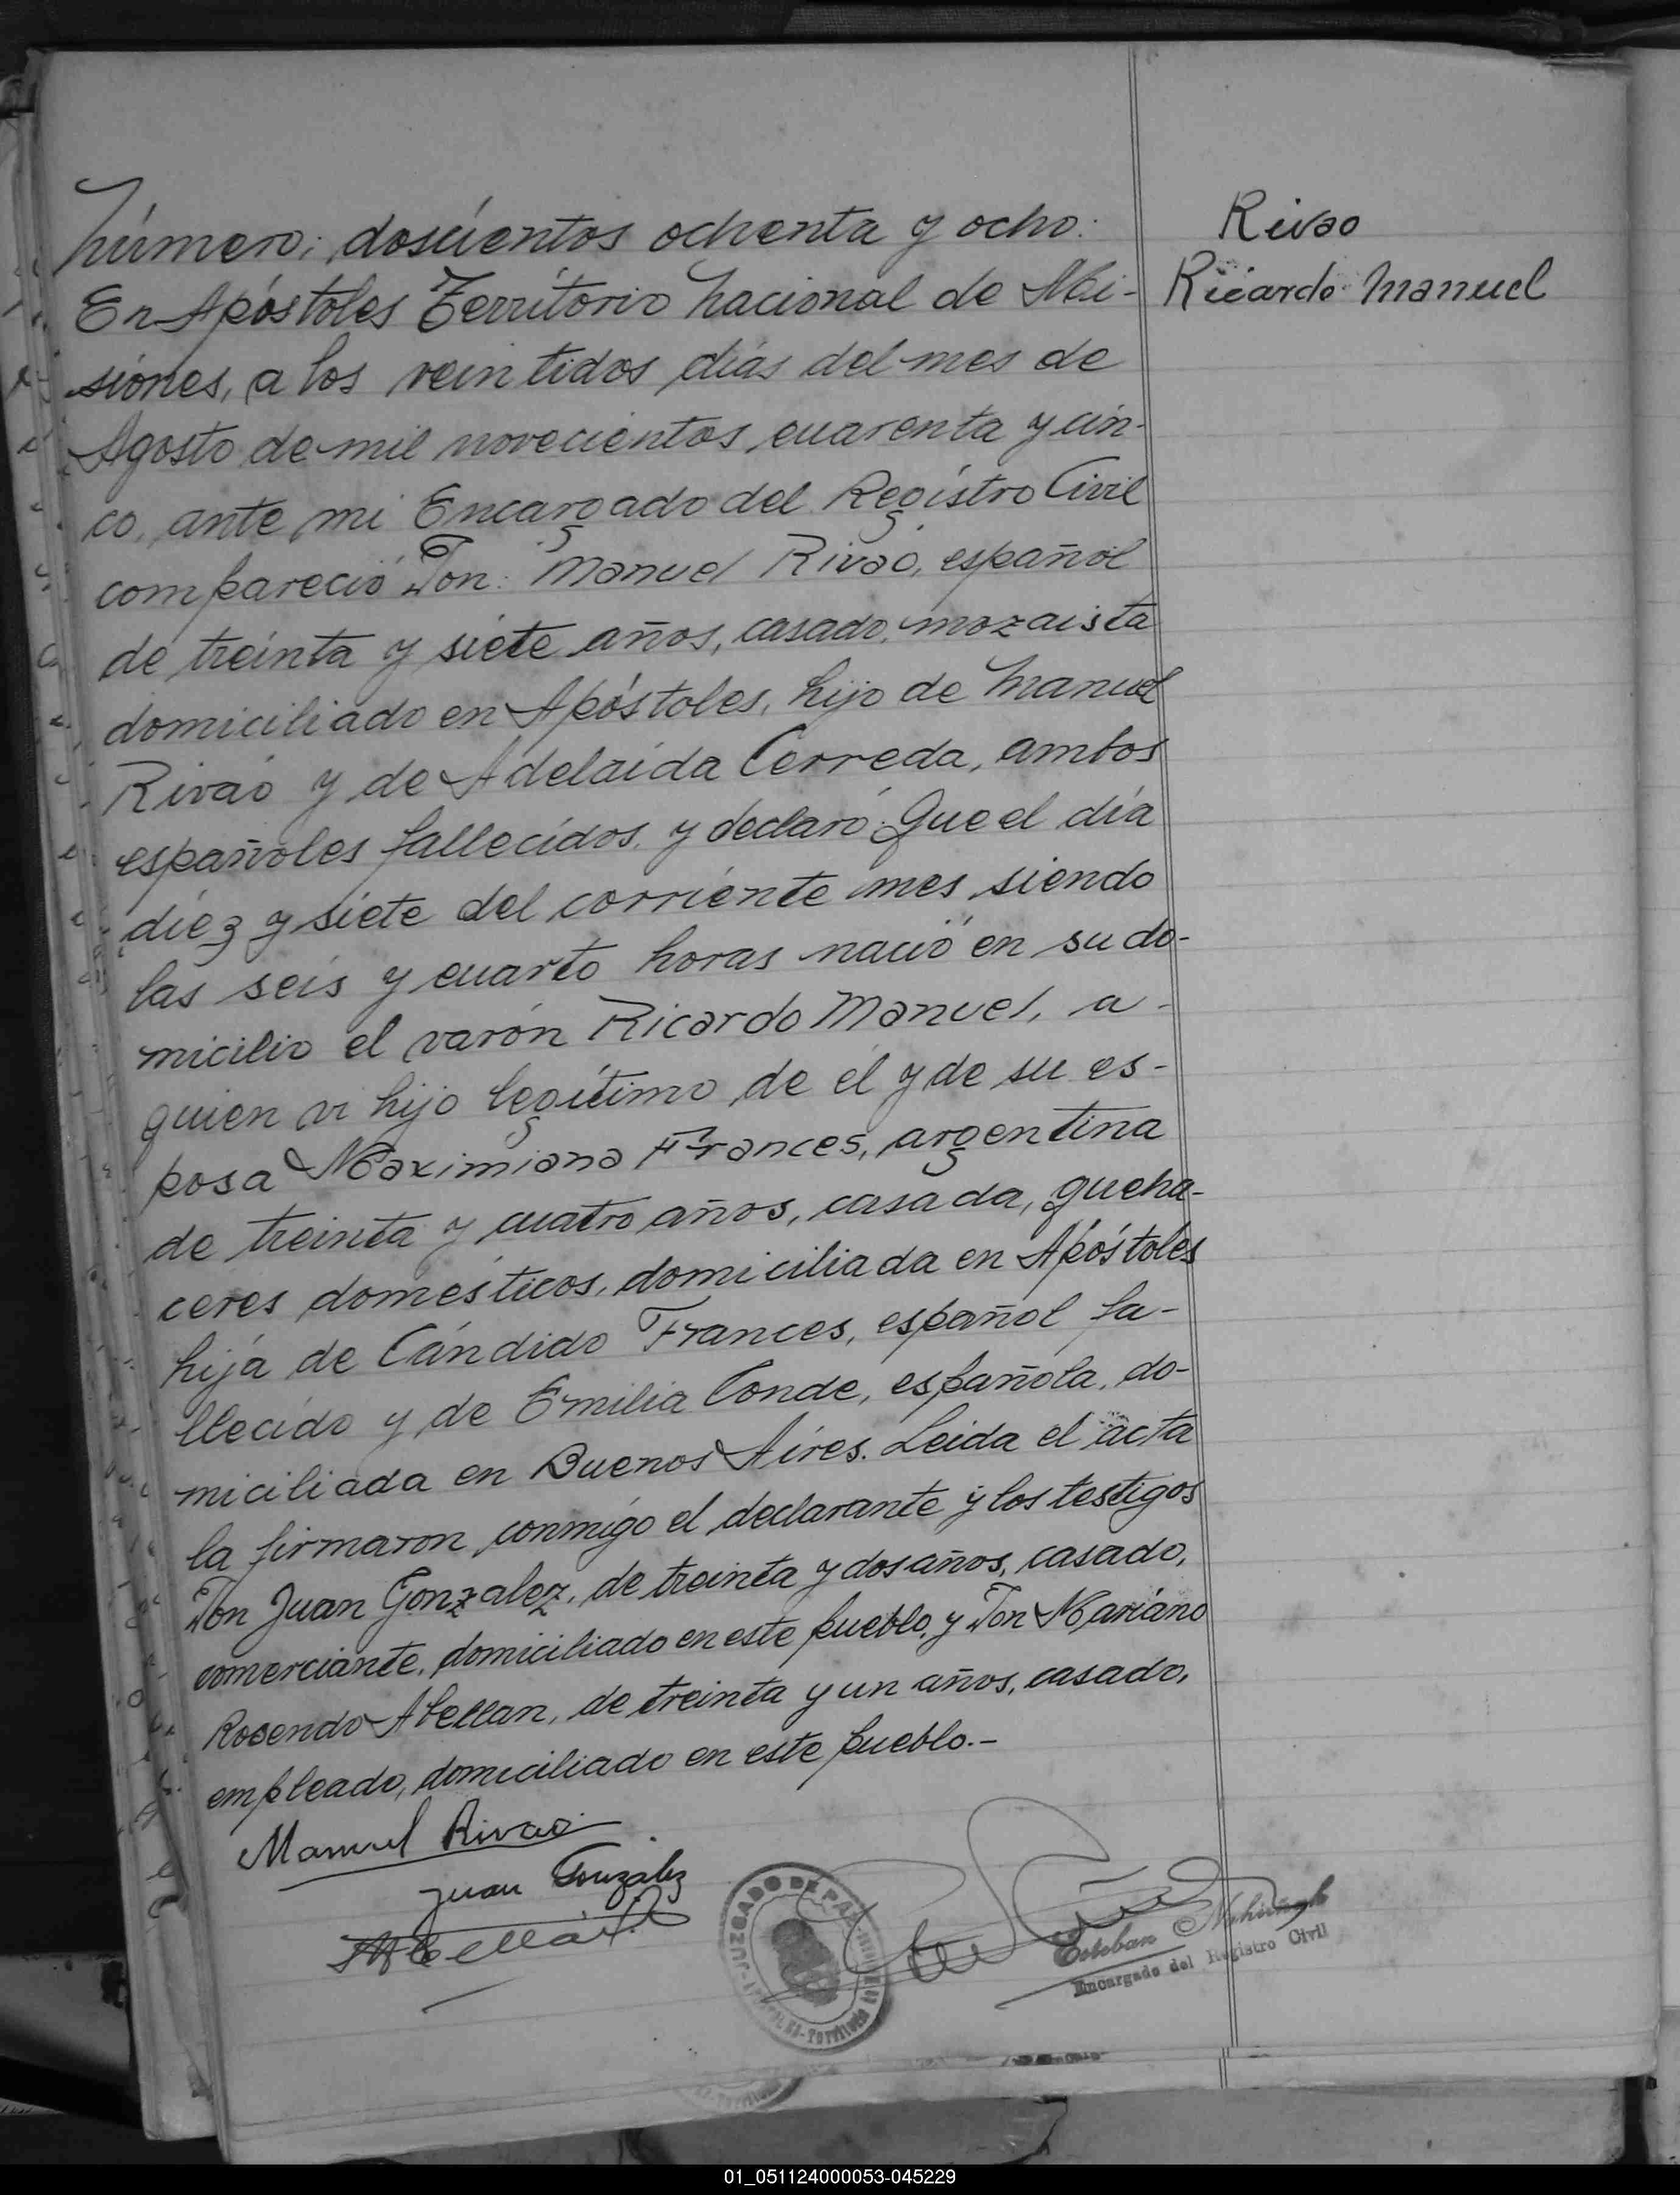 Número: doscientos ochenta y ocho:
Rivao
Ricardo Manuel
En Apóstoles Territorio Nacional de Mi-
siones, a los veintidos días del mes de
Agosto de mil novecientos cuarenta y cin-
co, ante mi Encargado del Registro Civil
compareció Don: Manuel Rivao, español
de treinta y siete años, casado, mozaista
domiciliado en Apóstoles, hijo de Manuel
Rivao y de Adelaida Cerreda, ambos
españoles fallecidos, y declaró: Que el día
diez y siete del corriente mes siendo
las seis y cuarto horas nació en su do-
micilio el varón Ricardo Manuel, a-
quien vi hijo legítimo de él y de su es-
posa Maximiana Frances, argentina
de treinta y cuatro años, casada, queha-
ceres domésticos, domiciliada en Apóstoles
hija de Cándido Frances, español fa-
llecido y de Emilia Conde, española, do-
miciliada en Buenos Aires. Leida el acta
la firmaron conmigo el declarante y los testigos
Don Juan Gonzalez, de treinta y dos años, casado,
comerciante, domiciliado en este pueblo, y Don Mariano
Rosendo Abellan, de treinta y un años, casado,
empleado, domiciliado en este pueblo.-
Manuel Rivao
Juan González
MAbellán
JUZGADO DE PAZ
Esteban
Encargado del Registro Civil
01_051124000053-045229